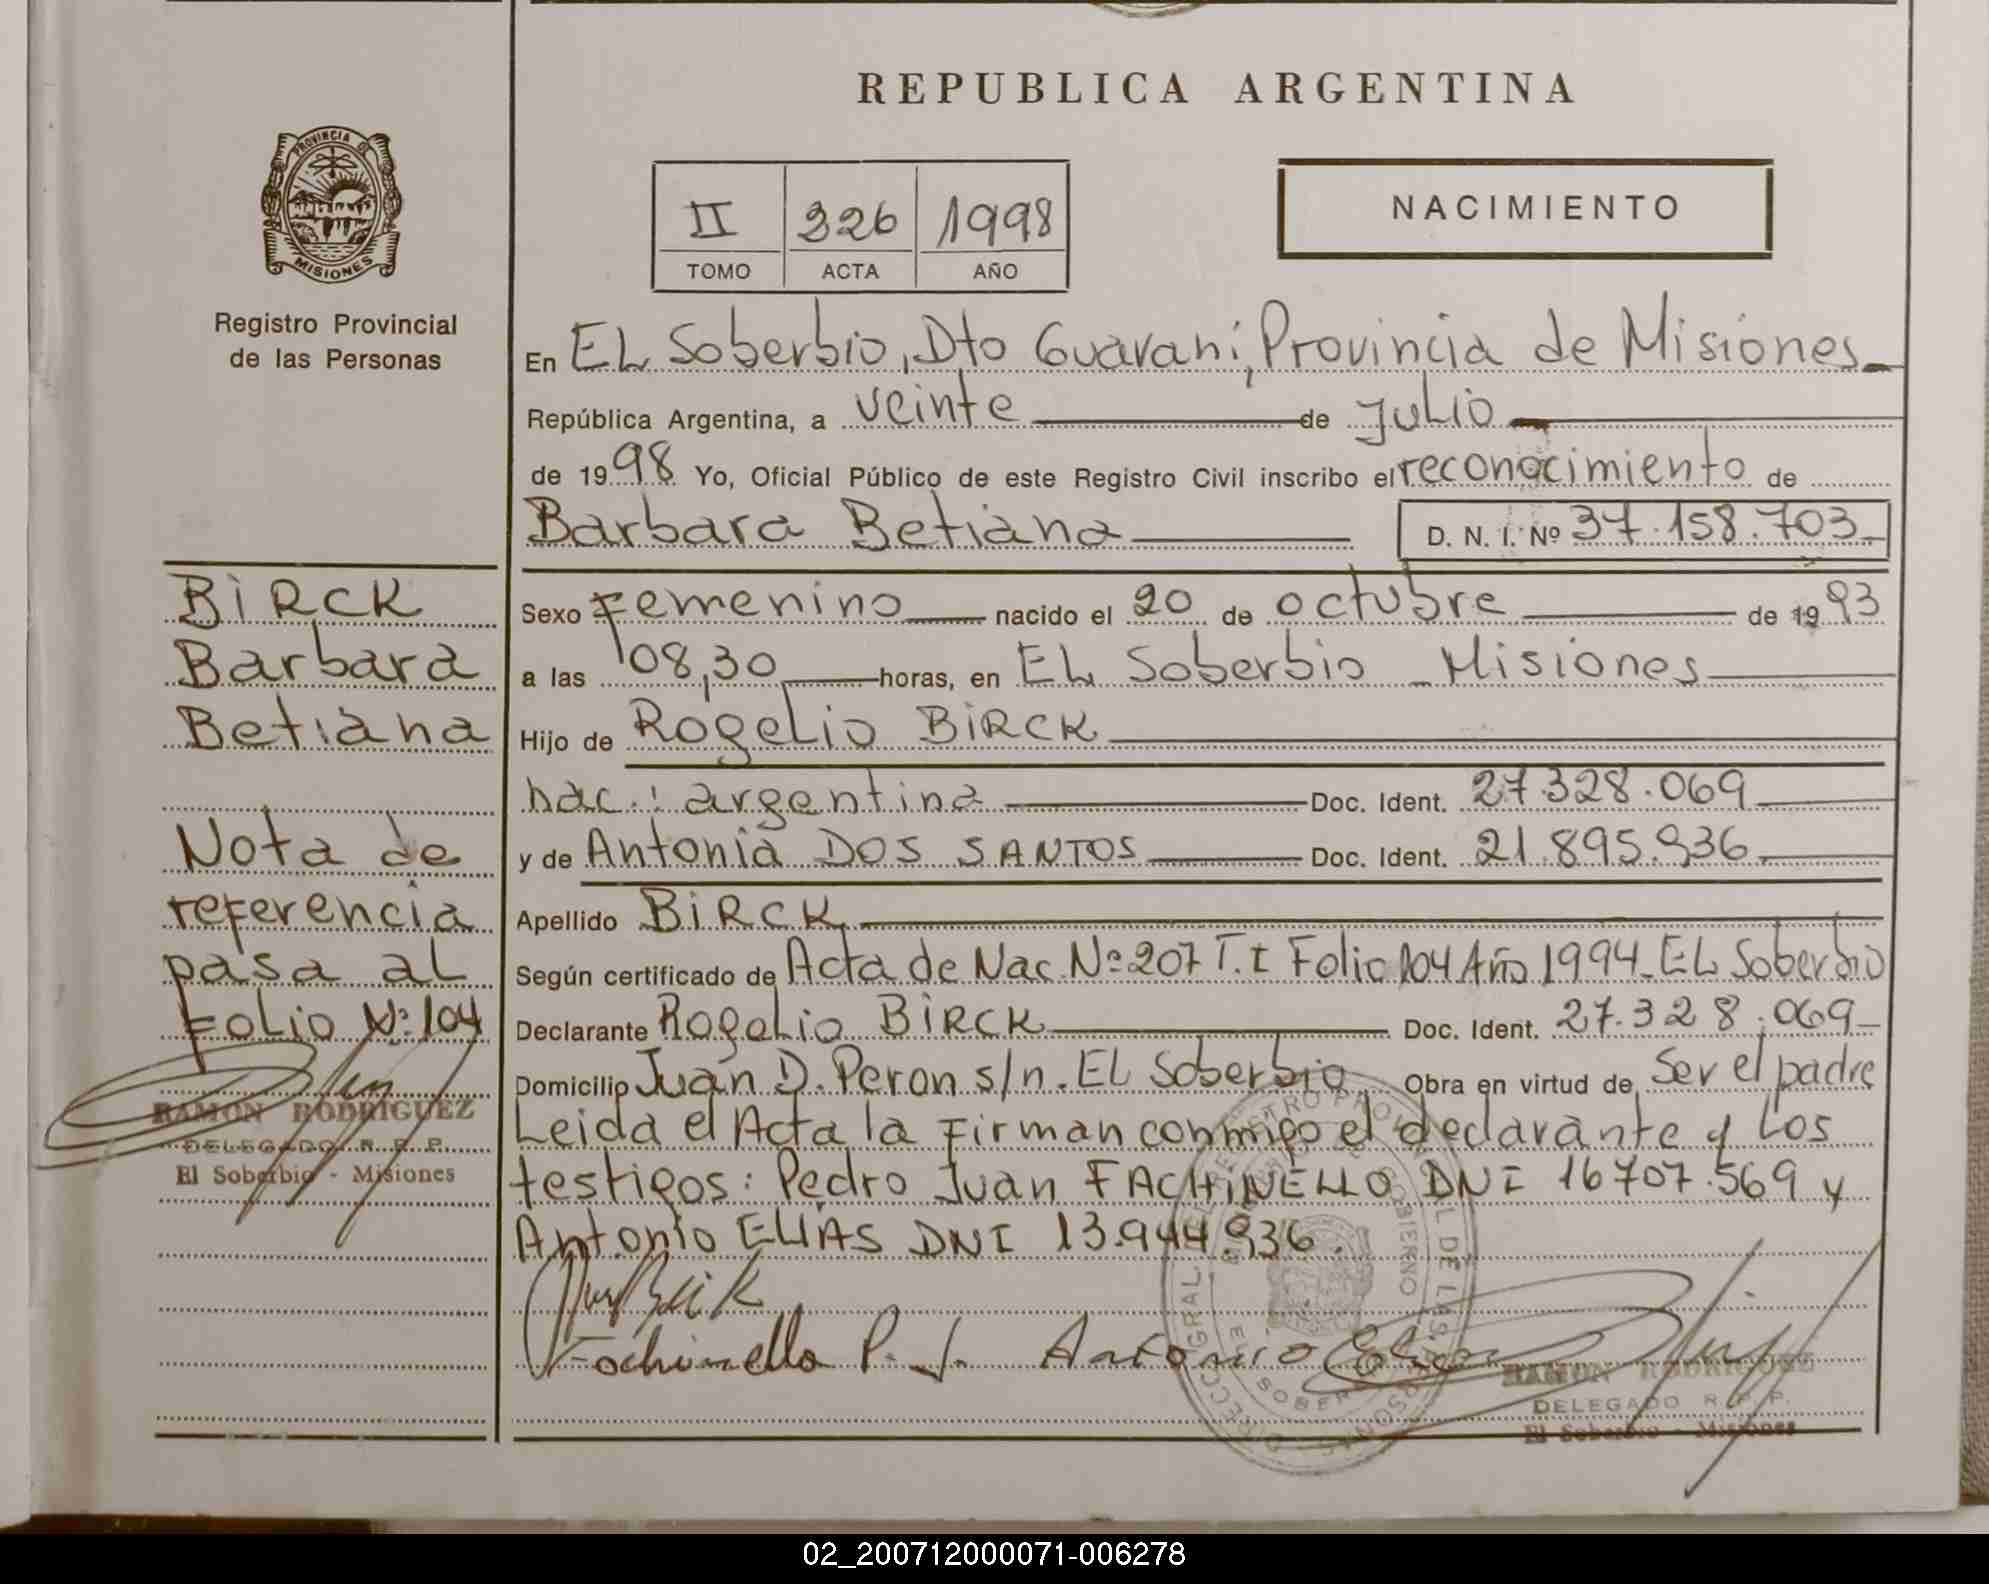 REPUBLICA ARGENTINA
PROVINCIA DE
MISIONES
Registro Provincial
de las Personas
NACIMIENTO
II 326 1998
TOMO ACTA AÑO
En EL Soberbio, Dto Guaraní, Provincia de Misiones
República Argentina, a veinte de Julio
de 1998 Yo, Oficial Público de este Registro Civil inscribo el reconocimiento de
Barbara Betiana D. N. I. Nº 37.158.703
BIRCK
Barbara
Betiana
Nota de
referencia
pasa al
Folio Nº 104
RAMON RODRIGUEZ
DELEGADO R. P. P.
El Soberbio - Misiones
Sexo Femenino nacido el 20 de octubre de 1993
a las 08,30 horas, en EL Soberbio - Misiones
Hijo de Rogelio BIRCK
nac.: argentina Doc. Ident. 27.328.069
y de Antonia DOS SANTOS Doc. Ident. 21.895.936
Apellido BIRCK
Según certificado de Acta de Nac. Nº 207 T. I Folio 104 Año 1994 - EL Soberbio
Declarante Rogelio BIRCK Doc. Ident. 27.328.069
Domicilio Juan D. Peron s/n. EL Soberbio Obra en virtud de Ser el padre
Leida el Acta la Firman conmigo el declarante y Los
testigos: Pedro Juan FACHINELLO DNI 16707.569 y
Antonio ELIAS DNI 13.944.936.
Fachinello P. J. Antonio Elias
RAMON RODRIGUEZ
DELEGADO R. P. P.
El Soberbio - Misiones
02_200712000071-006278